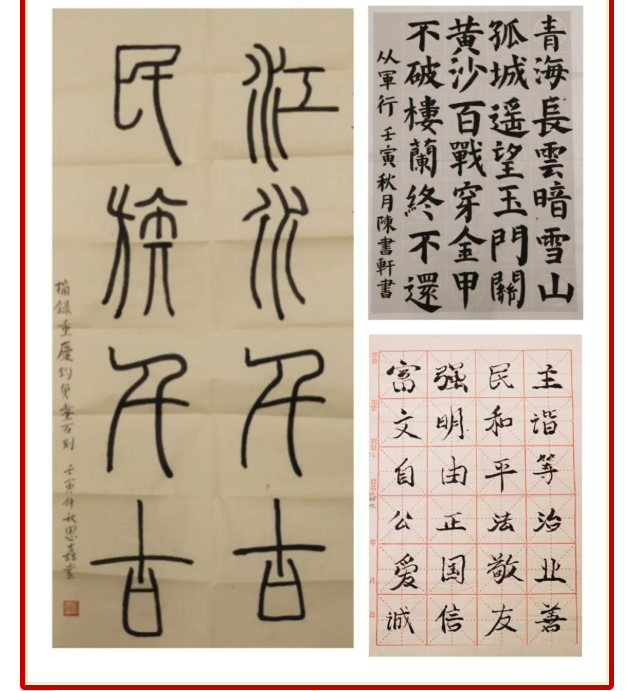 江水千古
民族千古
摘録重慶 石刻 壬寅仲秋思 書
青海長雲暗雪山
孤城遥望玉門關
黄沙百戰穿金甲
不破樓蘭終不還
从軍行 壬寅秋月陳書軒書
富强民主
文明和谐
自由平等
公正法治
爱国敬业
诚信友善